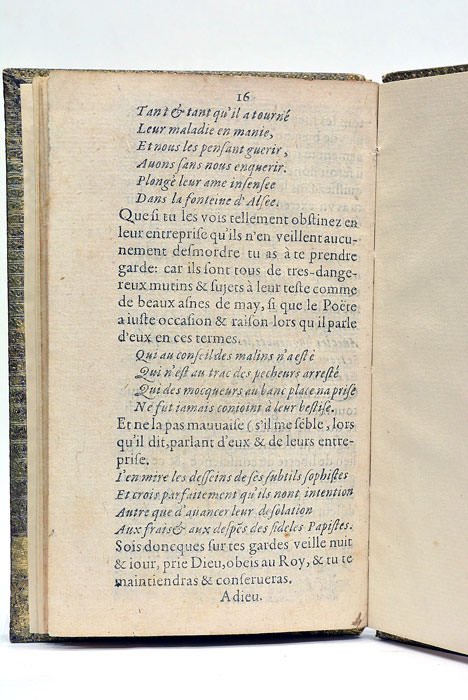 16
Tant & tant qu'il a tourné
Leur maladie en manie,
Et nous les pensant guerir,
Auons sans nous enquerir.
Plongé leur ame insensee
Dans la fonteine d'Alsee.
Que si tu les vois tellement obstinez en
leur entreprise qu'ils n'en veillent aucu-
nement desmordre tu as à te prendre
garde: car ils sont tous de tres-dange-
reux mutins & sujets à leur teste comme
de beaux asnes de may, si que le Poëte
a iuste occasion & raison lors qu'il parle
d'eux en ces termes.
Qui au conseil des malins n'a esté
Qui n'est au trac des pecheurs arresté
Qui des mocqueurs au banc place na prise
Ne fut iamais conioint à leur bestise.
Et ne la pas mauuaise (s'il me sẽble, lors
qu'il dit, parlant d'eux & de leurs entre-
prise.
I'en mire les desseins de ses subtils sophistes
Et crois parfaittement qu'ils nont intention
Autre que d'auancer leur desolation
Aux frais & aux despẽs des fideles Papistes.
Sois doncques sur tes gardes veille nuit
& iour, prie Dieu, obeis au Roy, & tu te
maintiendras & conserueras.
Adieu.